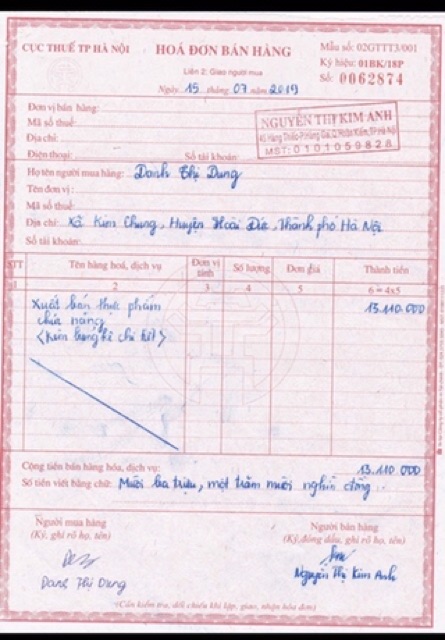 CỤC THUẾ TP HÀ NỘI
HOÁ ĐƠN BÁN HÀNG
Mẫu số: 02GTTT3/001
Liên 2: Giao người mua
Ký hiệu: 01BK/18P
Ngày 15 tháng 07 năm 2019
Số: 0062874
Đơn vị bán hàng:
Mã số thuế:
Địa chỉ:
Điện thoại: Số tài khoản:
NGUYỄN THỊ KIM ANH
MST: 0101059828
Họ tên người mua hàng: Danh Thị Dung
Tên đơn vị:
Mã số thuế:
Địa chỉ: Xã Kim Chung, Huyện Hoài Đức, Thành phố Hà Nội
Số tài khoản:
STT Tên hàng hoá, dịch vụ Đơn vị tính Số lượng Đơn giá Thành tiền
1 2 3 4 5 6 = 4x5
Xuất bán thực phẩm 13.110.000
chức năng
Cộng tiền bán hàng hóa, dịch vụ: 13.110.000
Số tiền viết bằng chữ: Mười ba triệu, một trăm mười nghìn đồng
Người mua hàng Người bán hàng
(Ký, ghi rõ họ, tên) (Ký, đóng dấu, ghi rõ họ, tên)
Danh Thị Dung Nguyễn Thị Kim Anh
(Cần kiểm tra, đối chiếu khi lập, giao, nhận hóa đơn)